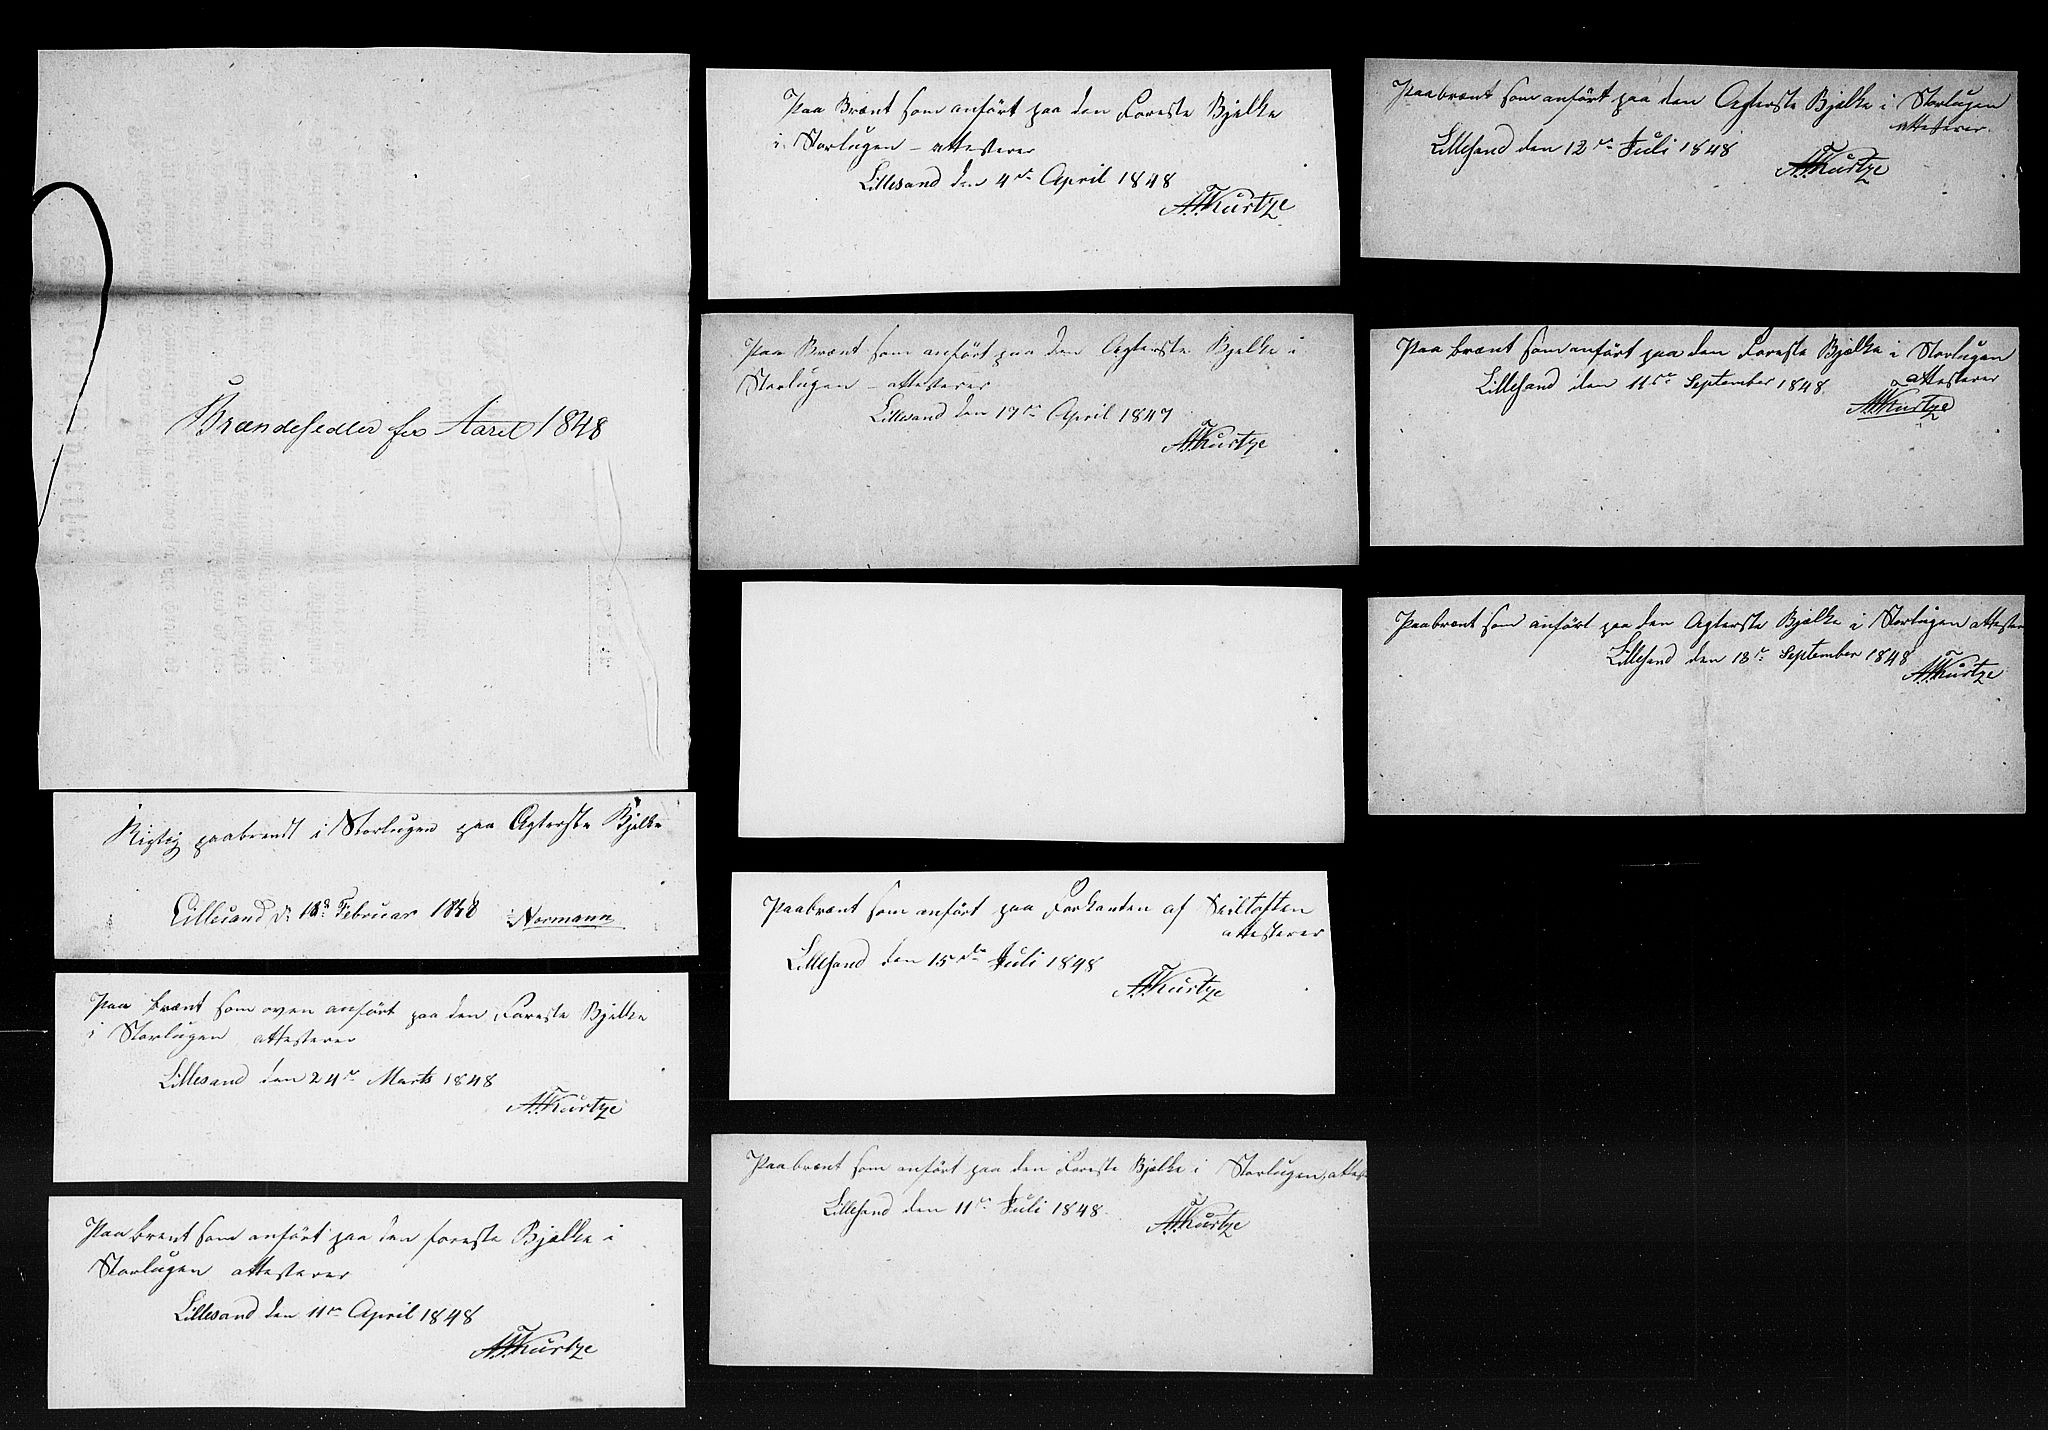 Brændesedler for Aaret 1848
Rigtig paabrendt i Storlugen paa Agterste Bjelke
Lillesand d. 18d Februar 1848 Normann
Paa brænt som oven anført paa den Foreste Bjelke
i Storlugen attesterer
Lillesand den 24de Marts 1848
Kurtze
Paa brent som anført paa den foreste Bjelke i
Storlugen attesterer
Lillesand den 11te April 1848
Kurtze
Paa Brænt som anført paa den Foreste Bjelke
i Storlugen - attesterer
Lillesand den 4de April 1848
Kurtze
Paa Brænt som anført paa den Agterste Bjelke i
Storlugen - attesterer
Lillesand den 17de April 1847
Kurtze
Paabrænt som anført paa Forkanten af
attesterer
Lillesand den 15de Juli 1848
Kurtze
Paabrænt som anført paa den Foreste Bjelke i Storlugen, attes
Lillesand den 11te Juli 1848.
Kurtze
Paabrænt som anført paa den Agterste Bjelke i Storlugen
attesterer.
Lillesand den 12te Juli 1848
Kurtze
Paa brænt som anført paa den Foreste Bjelke i Storlugen
attesterer
Lillesand den 11te September 1848.
Kurtze
Paabrænt som anført paa den Agterste Bjelke i Storlugen attester
Lillesand den 18de September 1848
Kurtze